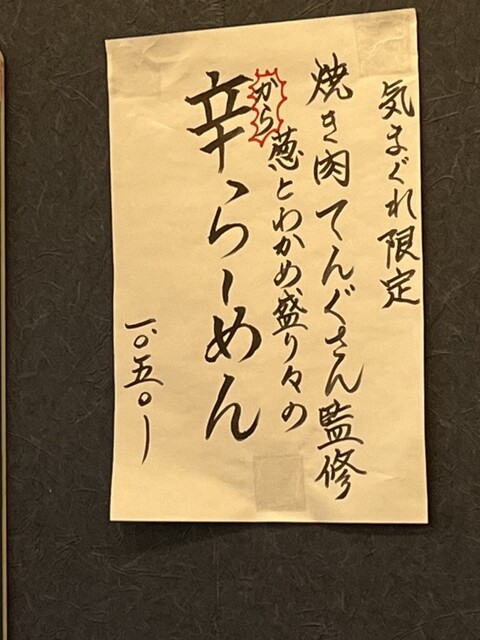 気まぐれ限定
焼き肉てんぐさん監修
葱とわかめ盛り々の
から
辛、らーめん
一〇五〇ー